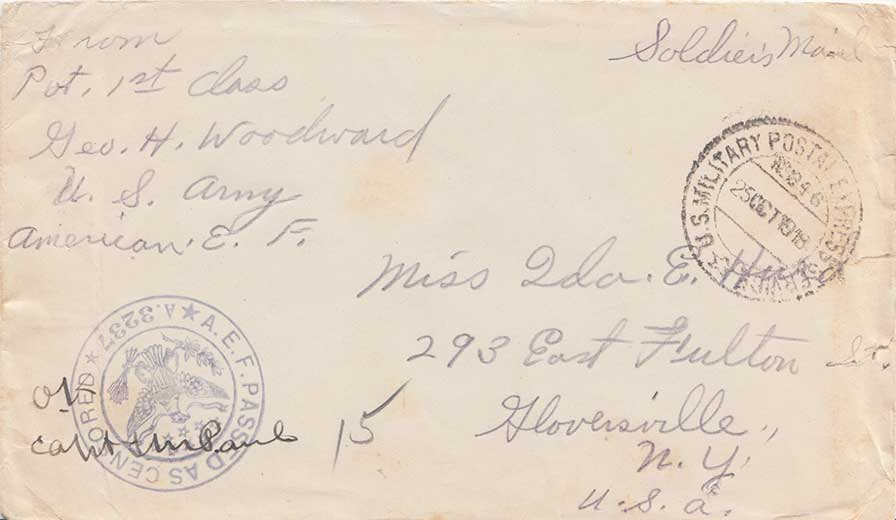 From
Pvt. 1st Class
Geo. H. Woodward
U. S. Army
American. E. F.
Soldier's Mail
U.S. MILITARY POSTAL EXPRESS SERVICE
25 OCT 1918
Miss Ida. E.
293 East Fulton St.
Gloversville,
N. Y.
U. S. A.
A.E.F. PASSED AS CENSORED
A.3237
OK
Capt
15